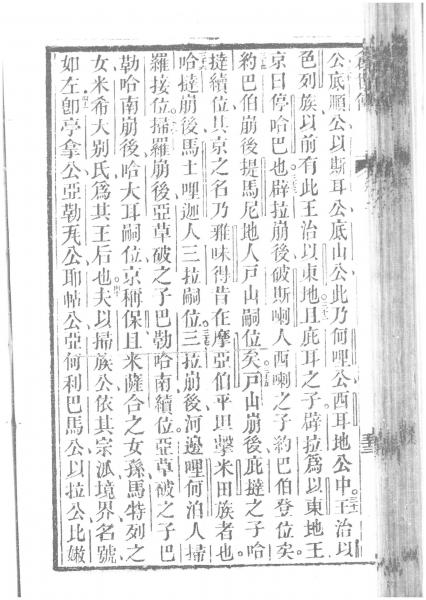 公底順公以斯耳公底山公此乃何哩公西耳地公中三十一王治以
色列族以前有此王治以東地且庇耳之子辟拉爲以東地王
京日停哈巴也辟拉崩後破斯喇人西喇之子約巴伯登位矣
約巴伯崩後提馬尼地人戶山嗣位矣三十五戶山崩後庇撻之子哈
撻續位其京之名乃雅味得昔在摩亞伯平坦擊米田族者也
哈撻崩後馬士哩迦人三拉嗣位三拉崩後河邊哩何泊人掃
羅接位掃羅崩後亞革破之子巴勒哈南續位亞革破之子巴
勒哈南崩後哈大耳嗣位京稱保且米薩合之女孫馬特列之
女米希大别氏爲其王后也夫以掃族公依其宗派境界名號
如左卽亭拿公亞勒旡公耶帖公亞何利巴馬公以拉公比嫩